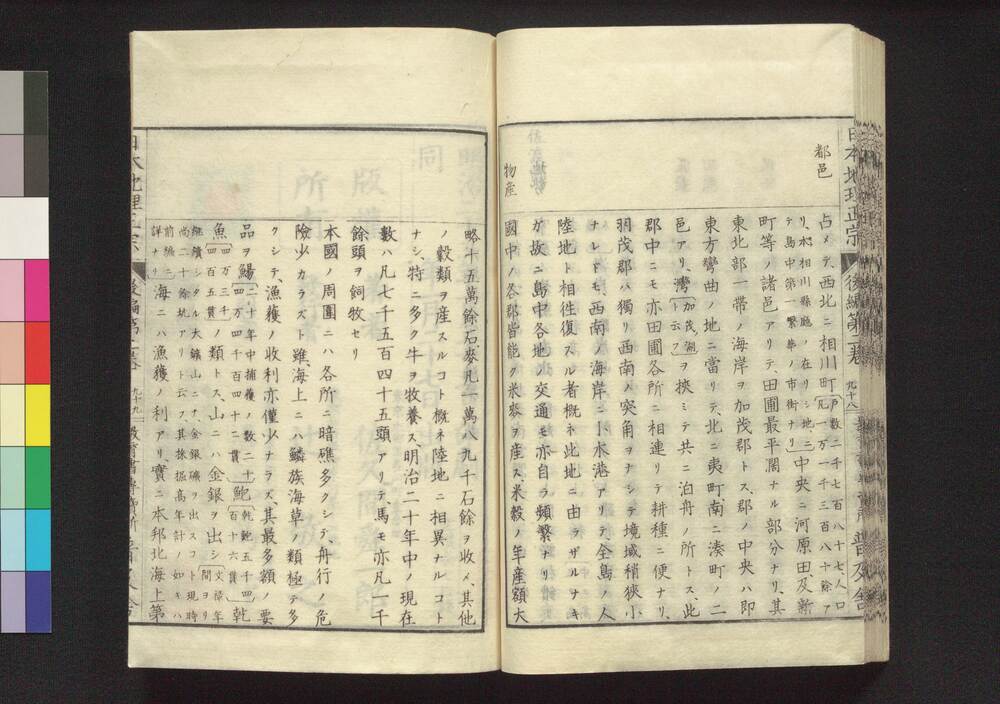 都邑
占メテ、西北ニ相川町戸数二千七百八十七、人口
凡一万一千三百八十餘ア
リ、水相川縣廳ノ在リシ地ニ
テ島中第一繁華ノ市街ナリ中央ニ河原田及新
町等ノ諸邑アリテ、田圃最平闊ナル部分ナリ、其
東北部一帶ノ海岸ヲ加茂郡トス、郡ノ中央ハ即
東方彎曲ノ地ニ當リテ、北ニ夷町南ニ湊町ノ二
邑アリ、灣加茂湖
ト云フヲ挾ミテ共ニ泊舟ノ所トス、此
郡中ニモ亦田圃各所ニ相連リテ耕種ニ便ナリ、
羽茂郡ハ獨リ西南ノ突角ヲナシテ境域稍狹小
ナレドモ、西南ノ海岸ニ小木港アリテ、全島ノ人
陸地ト相徃復スル者概ネ此地ニ由ラザルナキ
ガ故ニ、島中各地ノ交通モ亦自ラ頻繁ナリ
物産
國中ノ各郡皆能ク米麥ヲ産ス、米穀ノ年産額大
日本地理正宗
後編第二巻
九十八
普及舎
略十五萬餘石、麥凡一萬八九千石餘ヲ收メ、其他
ノ穀類ヲ産スルコト概ネ陸地ニ相異ナルコト
ナシ、特ニ多ク牛ヲ牧養ス、明治二十年中ノ現在
數ハ凡七千五百四十五頭アリテ、馬モ亦凡一千
餘頭ヲ飼牧セリ
本國ノ周圍ニハ各所ニ暗礁多クシテ、舟行ノ危
險少カラズト雖、海上ニハ鱗族海草ノ類極テ多
クシテ、漁獲ノ收利亦僅少ナラズ、其最多額ノ要
品ヲ鯣二十年中捕獲ノ數二十
四万四千百四十二貫鮑乾鮑五千四
百十六貫乾
魚四万三千
四百五貫ノ類トス、山ニハ金銀ヲ出シ文禄年
間ヨリ
繼續シタル大鑛山ニテ、金銀礦ヲ出スコト現時
尚二十餘坑アリト云フ、其採掘高年計ノ如キハ
前編ニ
詳ナリ海ニハ漁獲ノ利アリ、實ニ本邦北海上第
日本地理正宗
後編第二巻
九十九